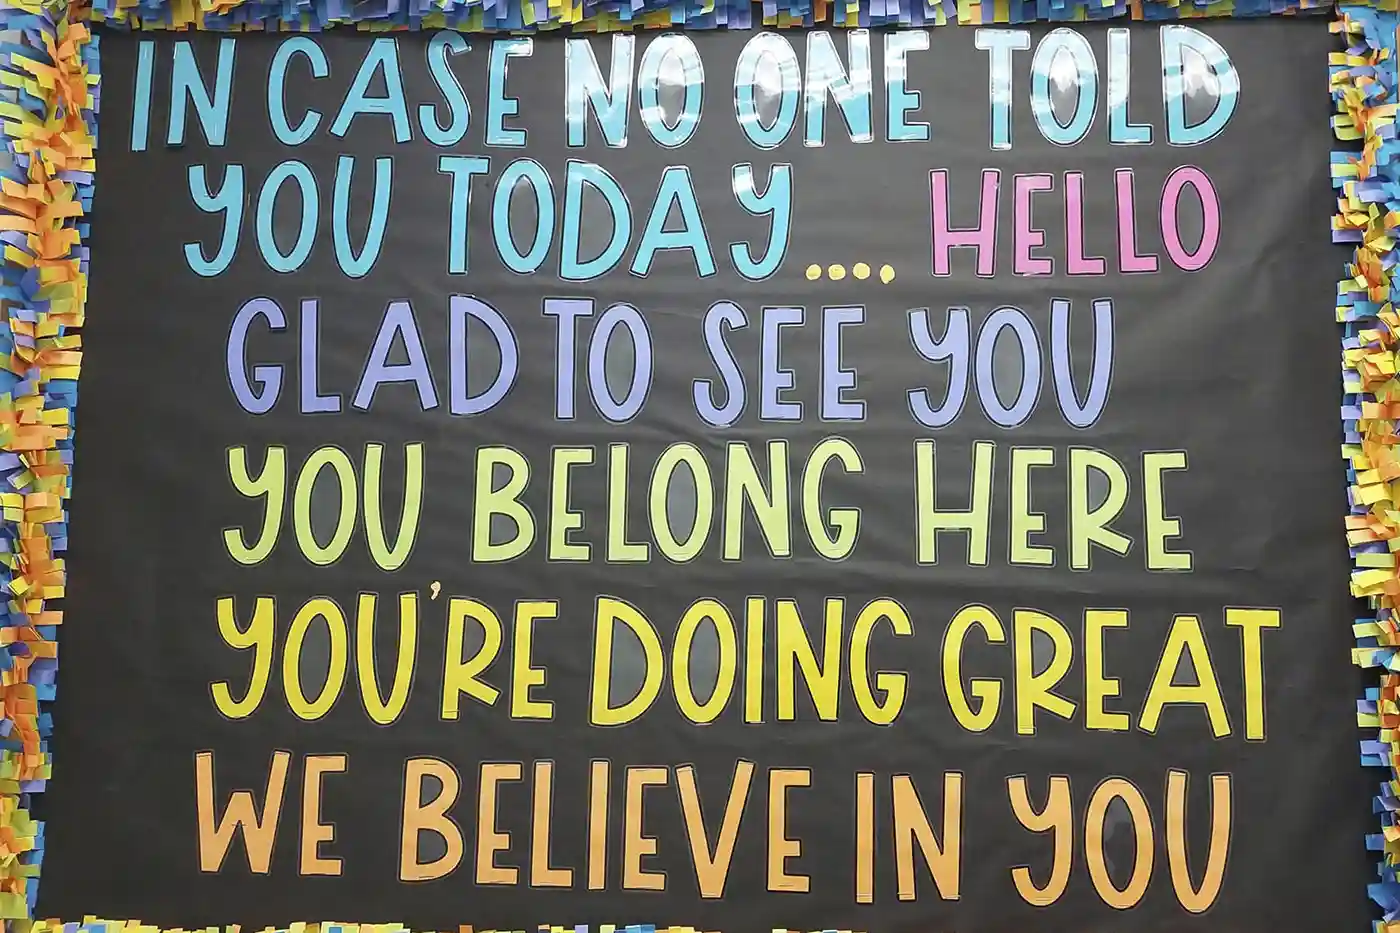 IN CASE NO ONE TOLD
YOU TODAY.... HELLO
GLAD TO SEE YOU
YOU BELONG HERE
YOU'RE DOING GREAT
WE BELIEVE IN YOU